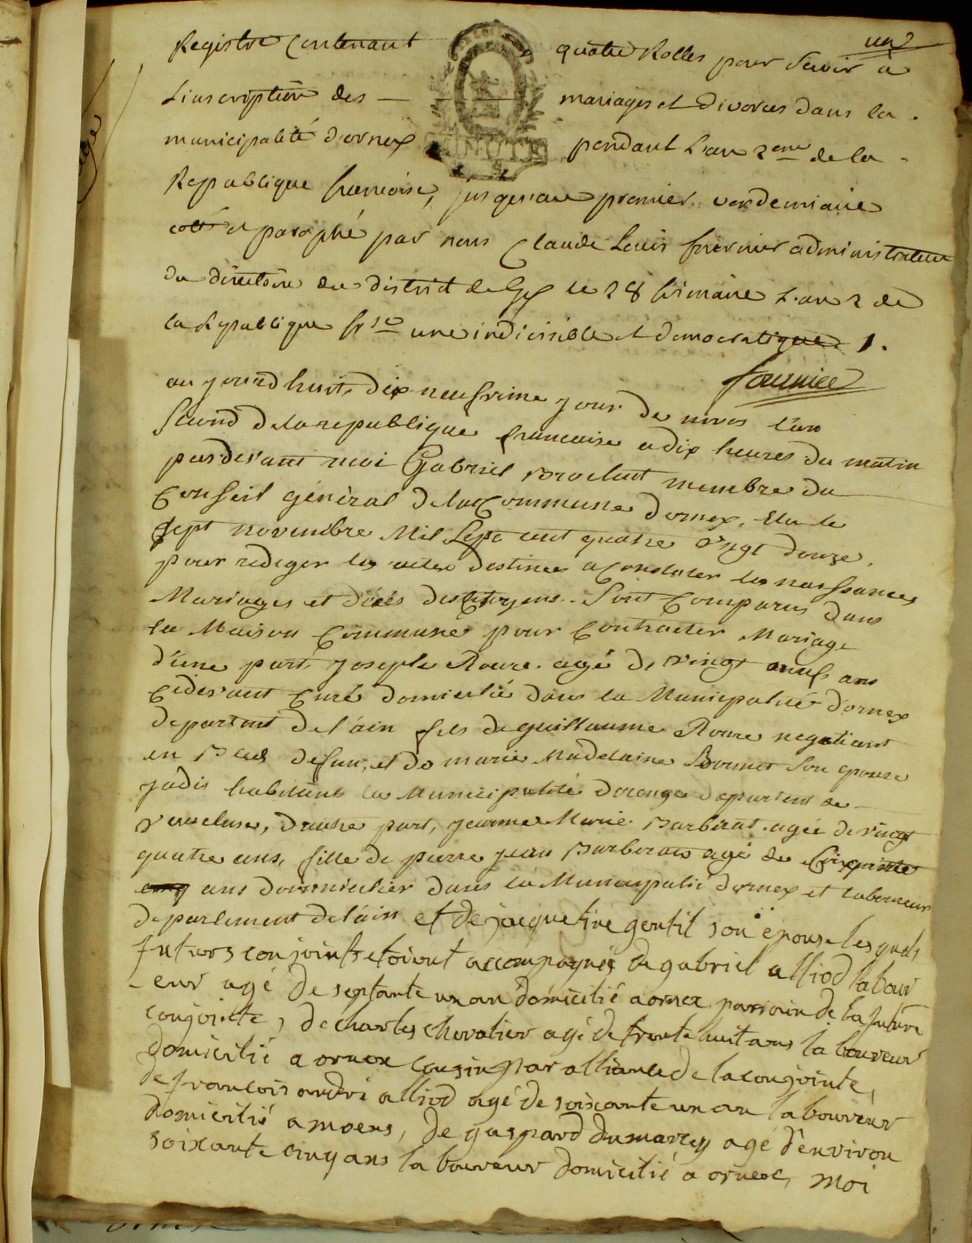 un
Registre Contenant quatre Rolles pour servir à
L'inscription des — mariages et divorces dans la
municipalité d'ornex pendant L'an 2eme de la
Republique francoise, jusqu'au premier vendemiaire
coté et paraphé par nous Claude Louis fournier administrateur
du directoire du district de Gex le 28 frimaire L'an 2 de
la Republique frse une indivisible et democratique 1.
fournier
aujourd huit dix neufvieme jour de nivos l'an
second de la republique francaise a dix heures du matin
pardevant moi Gabriel membre du
Conseil général de la Commune d'ornex, Elu le
sept novembre Mil Sept cent quatre vingt douze,
pour rediger les actes destinés a Constater les naissances
Mariages et décés des Citoyens. Sont Comparus dans
la Maison Commune pour Contracter Mariage
d'une part, joseph Roure agé de vingt neuf ans
Cidevant Curé domicilié dans la Municipalité d'ornex
departemt de l'ain fils de guillaume Roure negotiant
en defun, et de marie Madelaine Son epouse
jadis habitans la Municipalité d'orange departemt de
vaucluse, D'autre part, jeanne Marie Barberat agée de vingt
quatre ans, fille de pierre jean Barberat agé de Cinquante
ans domicilier dans la Municipalité d'ornex et laboureur
departement de l'ain et de jacquetine gentil son épouse lesquels
futurs conjoints etoient accompagnés de gabriel alliod labour
-eur agé de septante un an domicilié a ornex parrain de la future
conjointe, de charles chevalier agé de trente huit ans laboureur
domicilié a ornex cousin par alliance de la conjointe,
de francois andré alliod agé de soixante un an laboureur
domicilié a moens, de gaspard dumarest agé d'environ
soixante cinq ans laboureur domicilié a ornex, moi